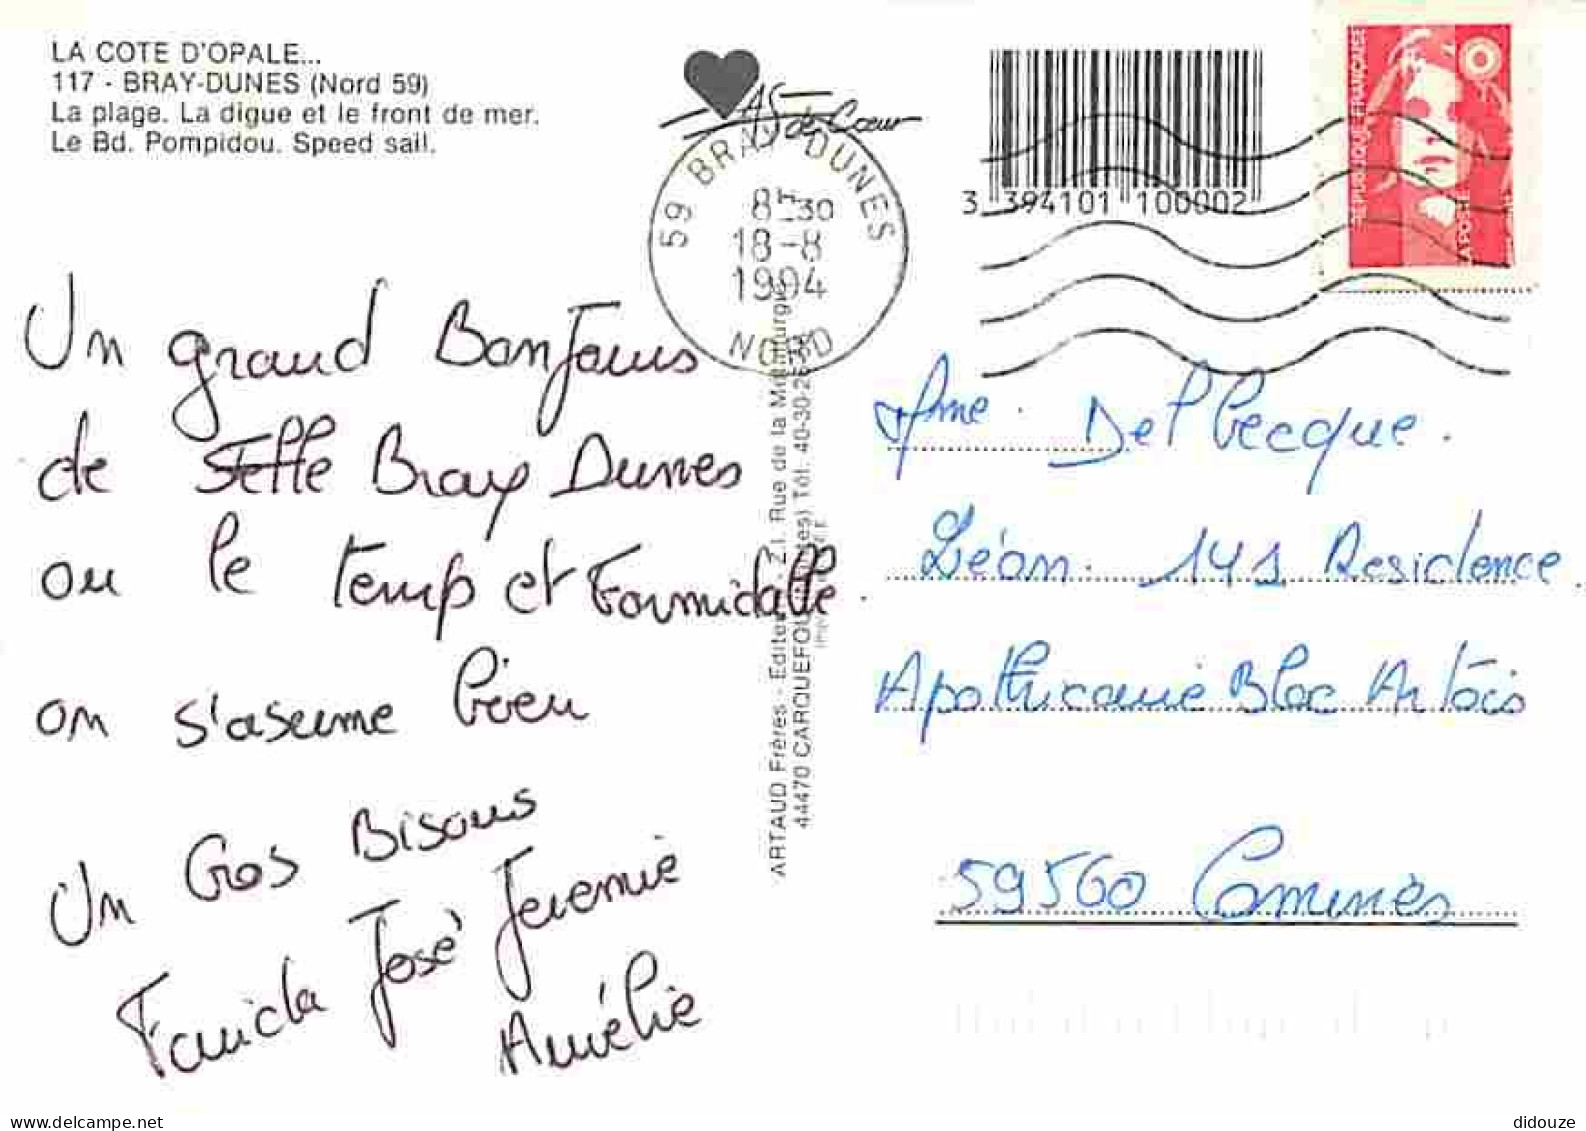 LA COTE D'OPALE...
117 - BRAY-DUNES (Nord 59)
La plage. La digue et le front de mer.
Le Bd. Pompidou. Speed sail.
AS de Cœur
59 BRAY-DUNES
8H30
18-8
1994
NORD
3 394101 100002
REPUBLIQUE FRANÇAISE
LA POSTE
Un grand Bonjours
de Bray Dunes
ou le temp et Formidalle.
on s'aseume bien
Un Gros Bisous
José Jeremie
Amélie
ARTAUD Frères - Editeurs - Z.I. Rue de la Métallurgie
44470 CARQUEFOU Tél. 40-30-26
Mme. Delbecque.
Léon. 141 Residence
Apothicairie Bloc Artois
59560 Comines
didouze